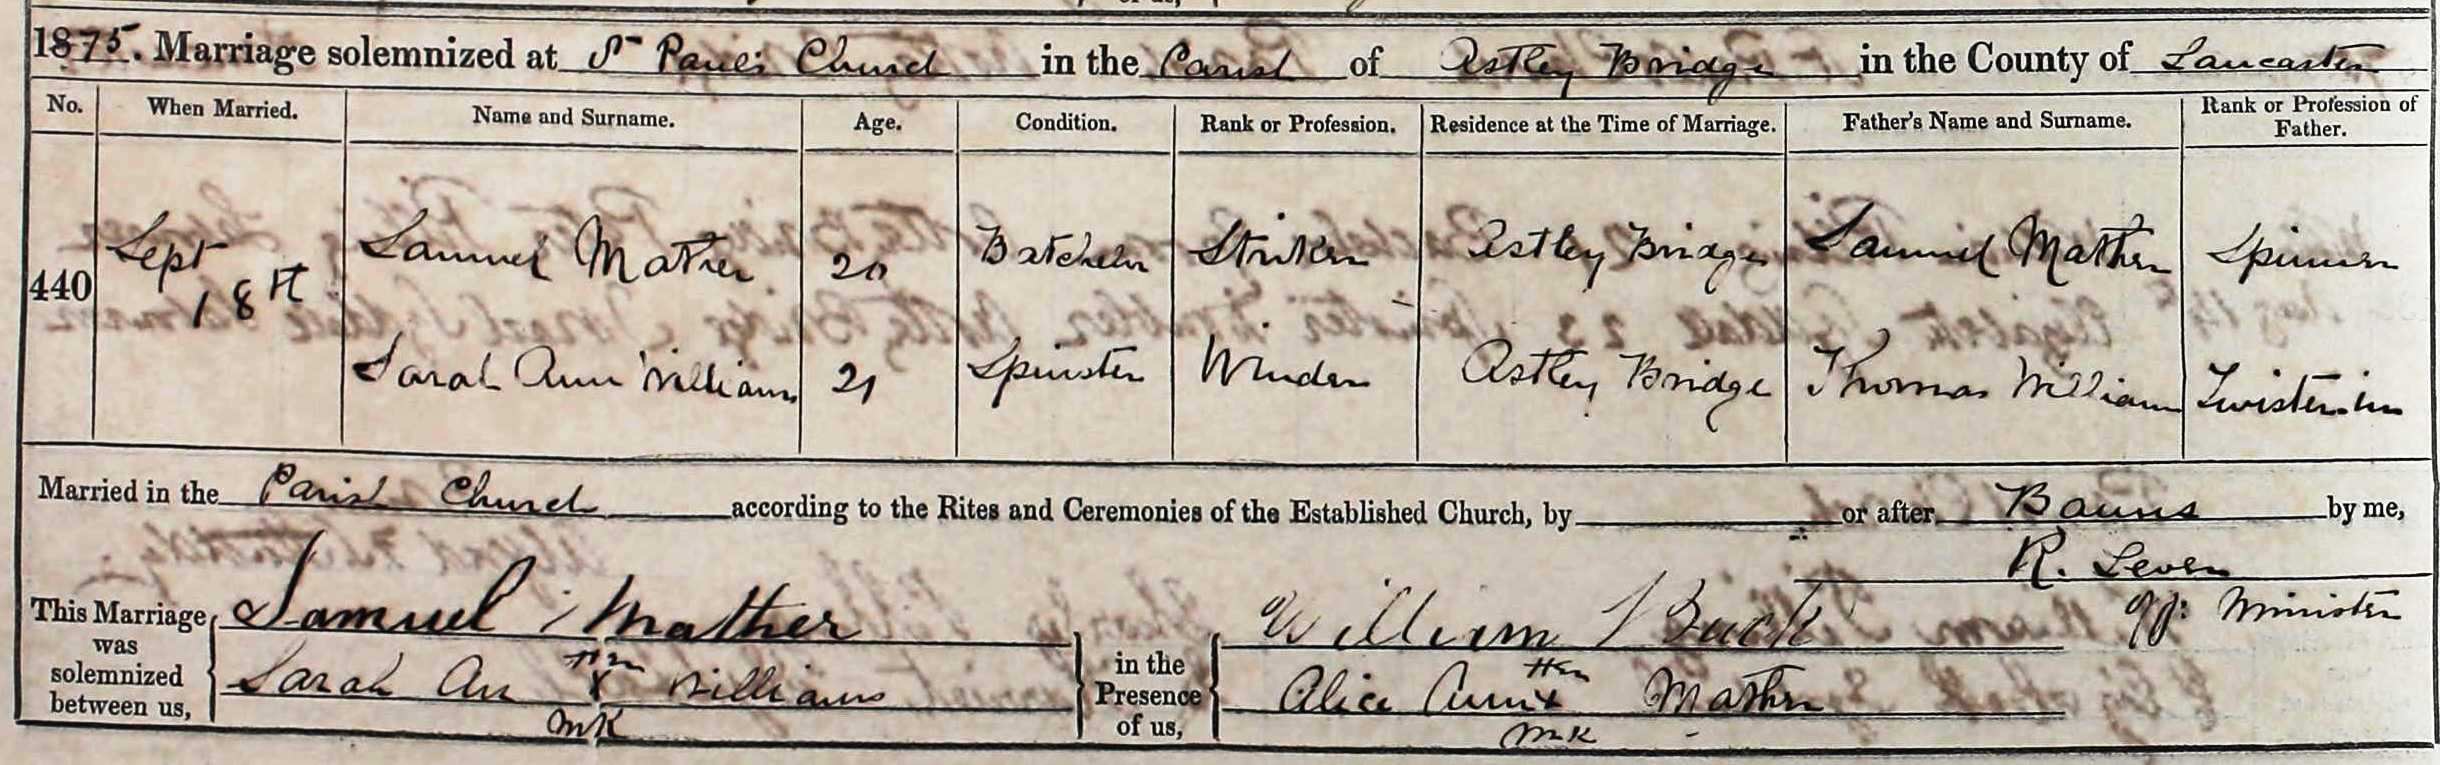 1875. Marriage solemnized at St Paul's Church in the Parish of Astley Bridge in the County of Lancaster
No. When Married. Name and Surname. Age. Condition. Rank or Profession. Residence at the Time of Marriage. Father's Name and Surname. Rank or Profession of Father.
440 Sept 18th Samuel Mather 20 Batchelor Striker Astley Bridge Samuel Mather Spinner
Sarah Ann Williams 21 Spinster Winder Astley Bridge Thomas Williams Twister-in
Married in the Parish Church according to the Rites and Ceremonies of the Established Church, by or after Banns by me,
R. Leven
Minister
This Marriage was solemnized between us, Samuel Mather in the Presence of us, William Buck
Sarah An Her X Mk Williams Alice Ann Her x Mk Mather